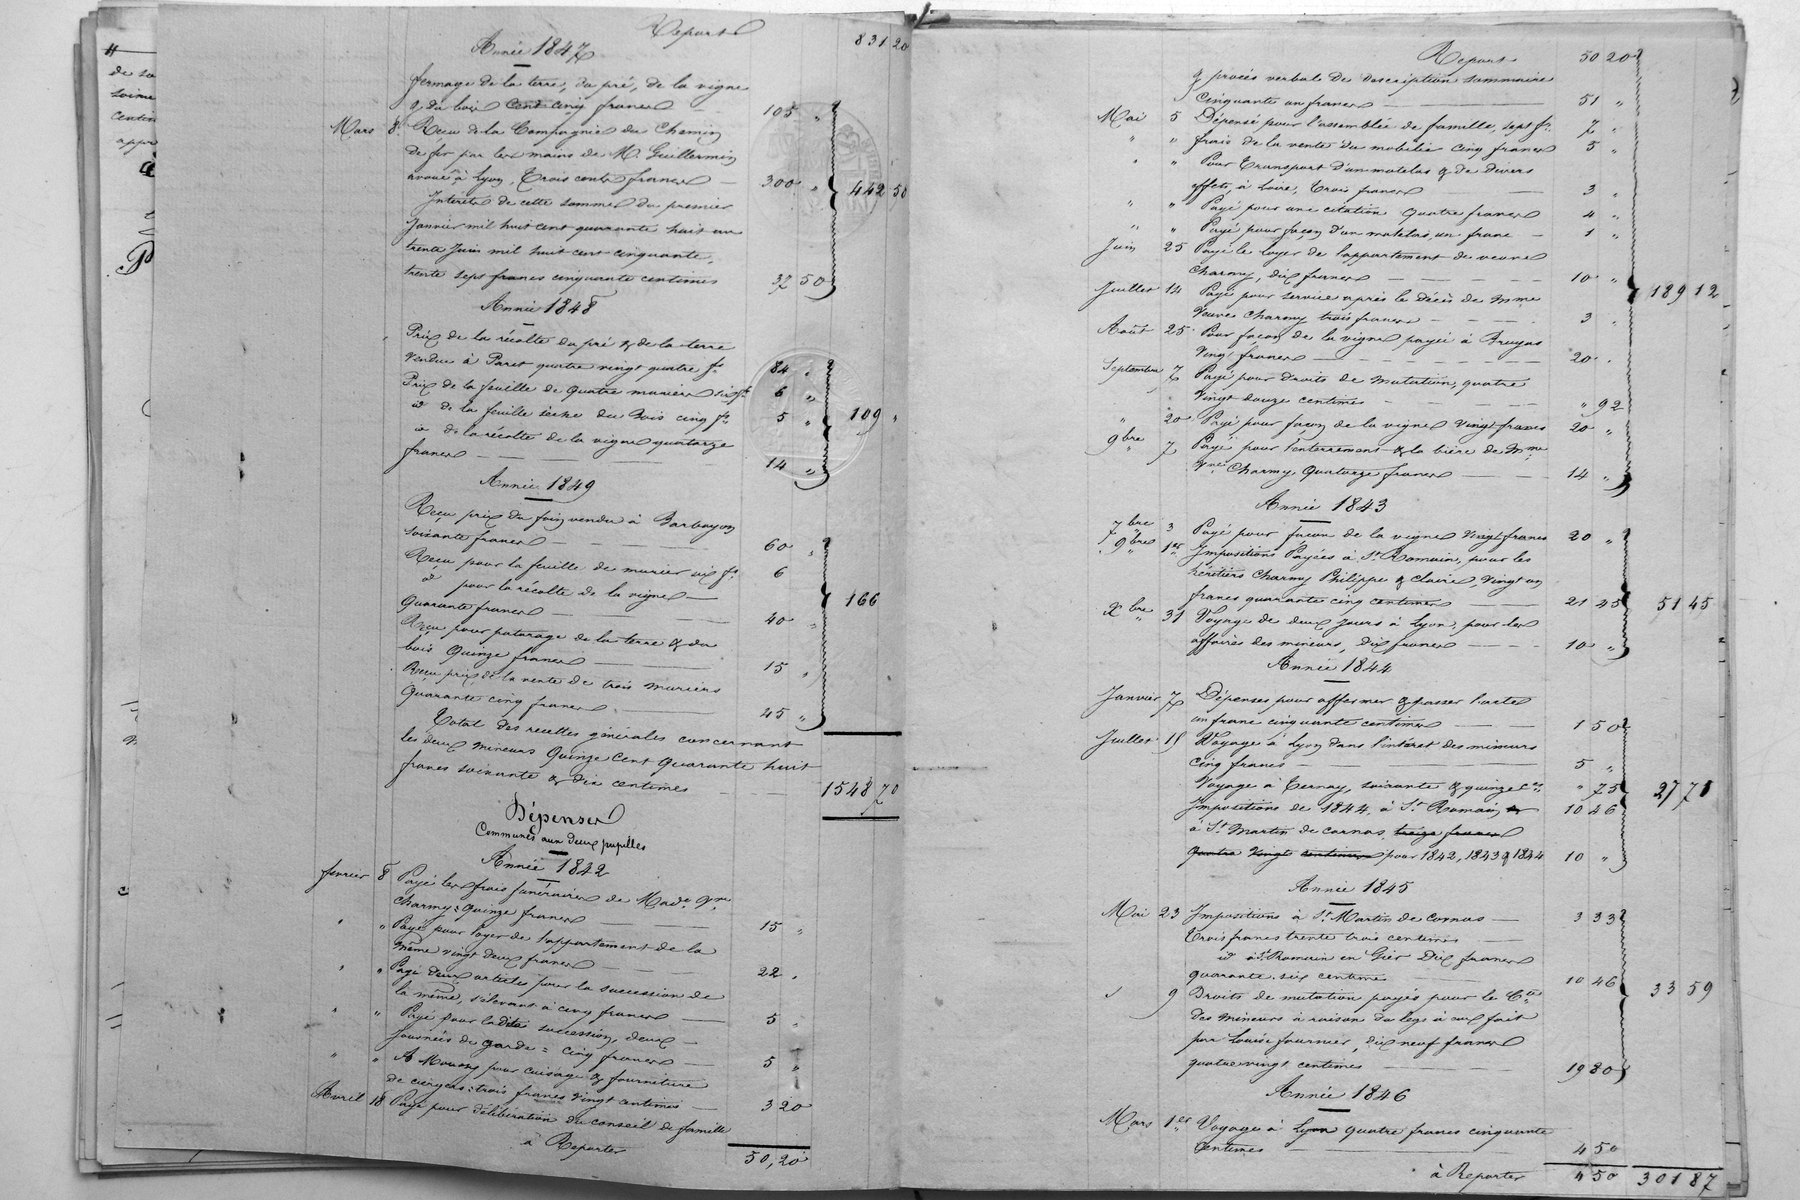 Report 831 20
Année 1847
fermage de la terre, du pré, de la vigne
& du bois Cent cinq francs 105 "
Mars 8. Reçu de la Compagnie du Chemin
de fer par les mains de M. Guillermin
avoué à Lyon, Trois cents francs 300 " 442 50
Intérêts de cette somme du premier
Janvier mil huit cent quarante huit au
trente Juin mil huit cent cinquante,
trente sept francs cinquante centimes 37 50
Année 1848
Prix de la récolte du pré & de la terre
vendue à Paret quatre vingt quatre fs 84 "
Prix de la feuille de quatre muriers six fs 6 "
id de la feuille sèche du Bois cinq fs 5 " 109 "
id de la récolte de la vigne quatorze
francs 14 "
Année 1849
Reçu prix du foin vendu à Barbayon
soixante francs 60 "
Reçu pour la feuille de murier six fs 6
id pour la récolte de la vigne 166
Quarante francs 40 "
Reçu pour paturage de la terre & du
bois Quinze francs 15 "
Reçu prix de la vente de trois muriers
Quarante cinq francs 45 "
Total des recettes générales concernant
les deux mineurs Quinze Cent Quarante huit
francs soixante & dix centimes 1548 70
Dépenses
Communes aux deux pupilles
Année 1842
fevrier 8 Payé les frais funéraires de Made Vve
Charmy = Quinze francs 15 "
" " Payé pour loyer de l'appartement de la
même vingt deux francs 22 "
" " Payé deux articles pour la succession de
la même, s'élevant à cinq francs 5 "
" " Payé pour ladite succession, deux
Journées de garde = cinq francs 5 "
" " A Mouton pour cuisage & fourniture
de cierges : trois francs vingt centimes 3 20
Avril 18 Payé pour délibération du conseil de famille
à Reporter 50,20
Report 50 20
& procès verbal de description sommaire
Cinquante un francs 51 "
Mai 5 Dépensé pour l'assemblée de famille, sept fs 7 "
" " frais de la vente du mobilier cinq francs 5 "
" " Pour transport d'un matelas & de divers
effets, à Loire, Trois francs 3 "
" " Payé pour une citation quatre francs 4 "
" " Payé pour façon d'un matelas, un franc 1 "
Juin 25 Payé le loyer de l'appartement de veuve
Charmy, dix francs 10 " 189 12
Juillet 14 Payé pour service après le décès de Mme
Veuve Charmy trois francs 3 "
Août 25 Pour façon de la vigne payée à Bruyas
Vingt francs 20 "
Septembre 7 Payé pour droits de mutation, quatre
Vingt douze centimes " 92
" 20 Payé pour façon de la vigne Vingt francs 20 "
9bre 7 Payé pour l'enterrement & la bière de Mme
Vve Charmy, Quatorze francs 14 "
Année 1843
7bre 3 Payé pour façon de la vigne Vingt francs 20 "
9bre 1er Impositions Payées à St Romain, pour les
héritiers Charmy Philippe & Claire, Vingt un
francs quarante cinq centimes 21 45 51 45
Xbre 31 Voyage de deux jours à Lyon, pour les
affaires des mineurs, Dix francs 10 "
Année 1844
Janvier 7 Dépenses pour affermer & passer l'acte
un franc cinquante centimes 1 50
Juillet 15 Voyage à Lyon dans l'intéret des mineurs
Cinq francs 5 "
Voyage à Ternay, soixante & quinze ces " 75 27 71
Impositions de 1844, à St Romain, 10 46
à St Martin de cornas treize francs
quatre Vingt centimes pour 1842, 1843 & 1844 10 "
Année 1845
Mai 23 Impositions à St Martin de Cornas 3 33
Trois francs trente trois centimes
id à St Romain en Gier Dix francs
quarante six centimes 10 46
9 Droits de mutation payés pour le Cte 33 59
des mineurs à raison du legs à eux fait
par Louise fournier, dix neuf francs
quatre vingt centimes 19 80
Année 1846
Mars 1er Voyage à Lyon quatre francs cinquante
Centimes 4 50
à Reporter 4 50 301 87